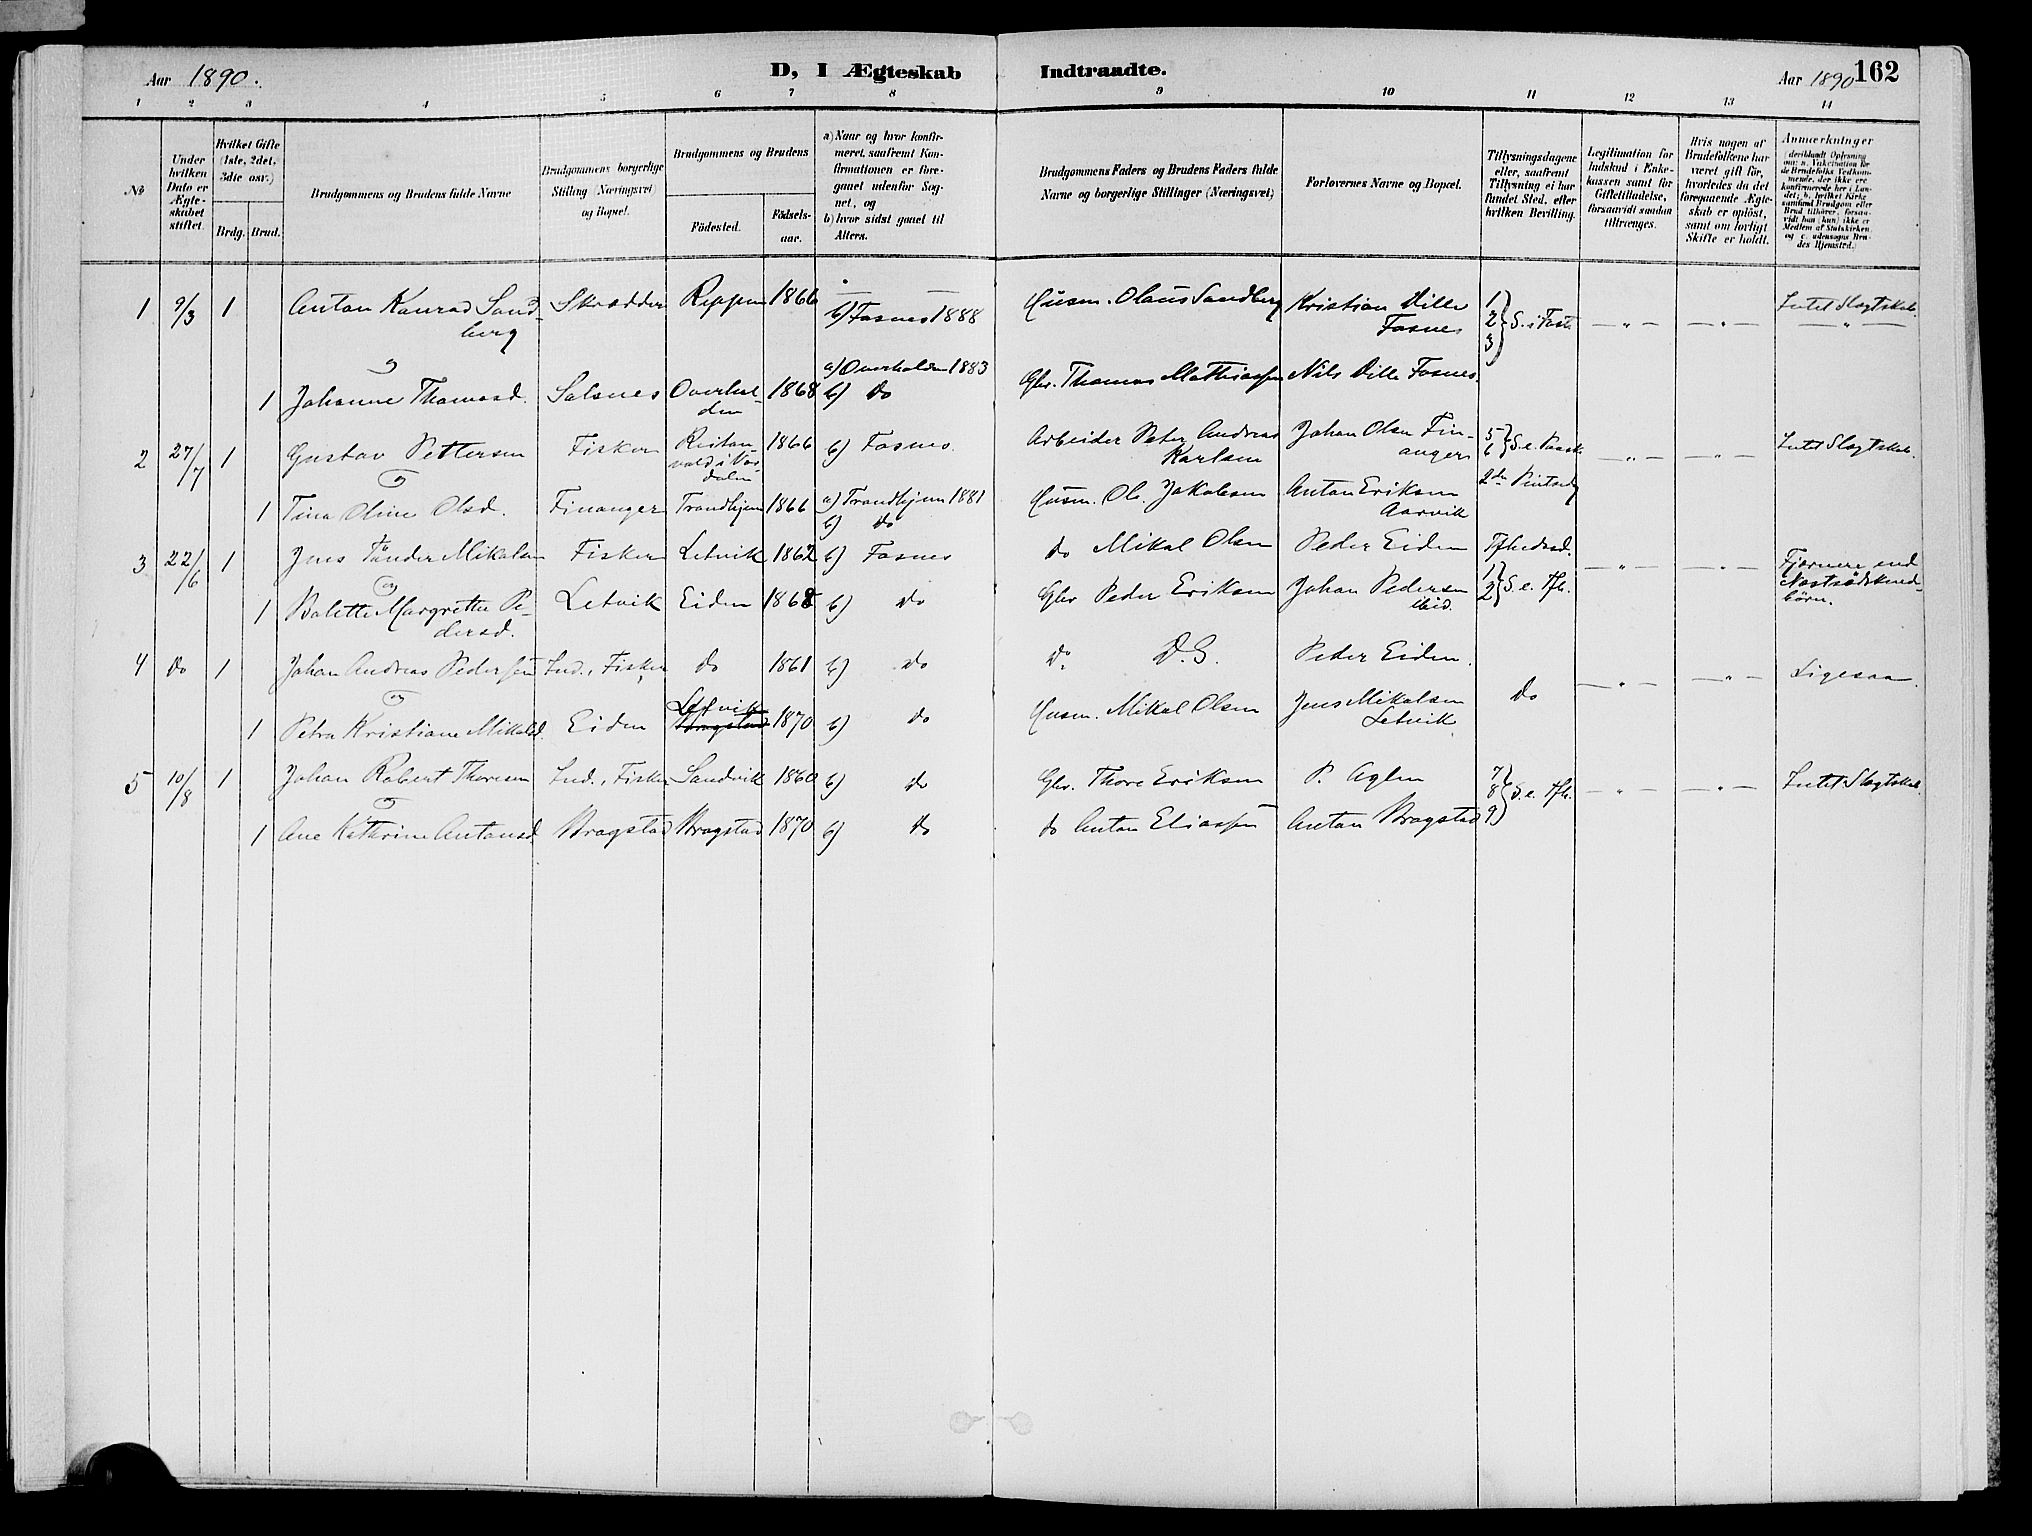 Aar 1890.
D, I Ægteskab Indtraadte.
Aar 1890 162
1 2 3 4 5 6 7 8 9 10 11 12 13 14
No
Under hvilken Dato er Ægteskabet stiftet.
Hvilket Gifte (1ste, 2det, 3die osv.)
Brdg. Brud.
Brudgommens og Brudens fulde Navne
Brudgommens borgerlige Stilling (Næringsvei) og Bopæl.
Brudgommens og Brudens
Födested.
Födselsaar.
a) Naar og hvor konfirmeret, saafremt Konfirmationen er foregaaet udenfor Sognet, og
b) hvor sidst gaaet til Alters.
Brudgommens Faders og Brudens Faders fulde Navne og borgerlige Stillinger (Næringsvei)
Forlovernes Navne og Bopæl.
Tillysningsdagene eller, saafremt Tillysning ei har fundet Sted, efter hvilken Bevilling.
Legitimation for Indskud i Enkekassen samt for Giftetilladelse, forsaavidt saadan tiltrænges.
Hvis nogen af Brudefolkene har været gift för, hvorledes da det foregaaende Ægteskab er oplöst, samt om lovligt Skifte er holdt.
Anmærkninger (deriblandt Oplysning om: a. Vakcination for de Brudefolks Vedkommende, der ikke ere konfirmerede her i Landet; b. hvilket Kirkesamfund Brudgom eller Brud tilhører, forsaavidt han (hun) ikke er Medlem af Statskirken, og c. udensogns Brudes Hjemsted.)
1 9/3 1 Anton Konrad Sandberg Skrædder Reppen 1866 b) Fosnes 1888 Husm. Olaus Sandberg Kristian Dille Fosnes 1 2 3 } S. i Faste — „ — — „ — Intet Slægtskab.
og
1 Johanne Thomasd. Salsnes Overhalden 1868 a) Overhalden 1883 b) do Gbr. Thomas Mathiassen Nils Dille Fosnes.
2 27/7 1 Gustav Pettersen Fisker 1866 b) Fosnes. Arbeider Peter Andreas Karlsen Johan Olsen Finanger 5 6 } S. e. Paaske — „ — — „ — Intet Slægtskab.
og
1 Tina Oline Olsd. Finanger Trondhjem 1866 a) Trondhjem 1881 b) do Husm. Ol. Jakobsen Anton Eriksen Aarvik 2den Pintsedg
3 22/6 1 Jens Tønder Mikalsen Fisker Letvik 1862 b) Fosnes do Mikal Olsen Peder Eiden Tfhedsd. — „ — — „ — Fjernere end Næstsødskendbörn.
og
1 Balette Margrethe Pedersd. Letvik Eiden 1868 b) do Gbr Peder Eriksen Johan Pedersen ibid. 1 2 } S. e. Tfh.
4 do 1 Johan Andreas Pedersen Ind., Fisker do 1861 b) do do D.S. Peder Eiden. — „ — — „ — Ligesaa.
og
1 Petra Kristiane Mikalsd. Eiden Letvik Vragstad 1870 b) do Husm. Mikal Olsen Jens Mikalsen Letvik do
5 10/8 1 Johan Robert Thoresen Ind., Fisker Sandvik 1860 b) do Gbr. Thore Eriksen P. Aglen 7 8 9 } S. e. Tfh. — „ — — „ — Intet Slægtskab.
og
1 Ane Kathrine Antonsd. Vragstad Vragstad 1870 b) do do Anton Eliassen Anton Vragstad